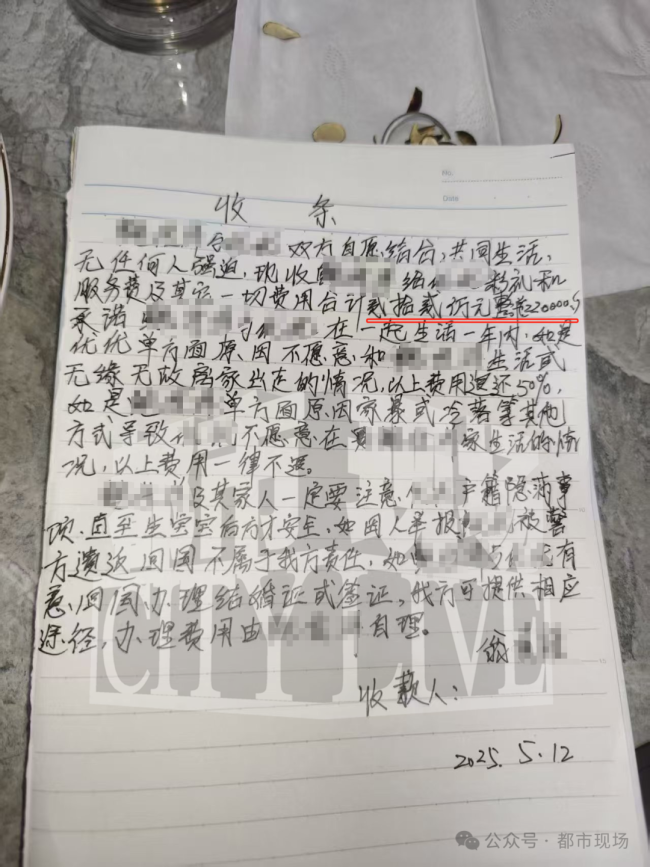 No:
Date
收 条
双方自愿结合,共同生活,
无任何人强迫,现收 给 彩礼和
服务费及其它一切费用合计贰拾贰万元整
承诺 在一起生活一年内,如是
单方面原因不愿意和 生活或
无缘无故离家出走的情况,以上费用退还50%,
如是 单方面原因家暴或冷落等其他
方式导致 不愿意在 家生活的情
况,以上费用一律不退。
及其家人一定要注意 户籍隐满事
项,直至生宝宝后方才安全,如因人举报 被警
方遣返回国不属于我方责任,如 有
意回国办理结婚证或签证,我方可提供相应
途径,办理费用由 自理。
收款人:
2025.5.12
CITY LIVE
公众号·都市现场